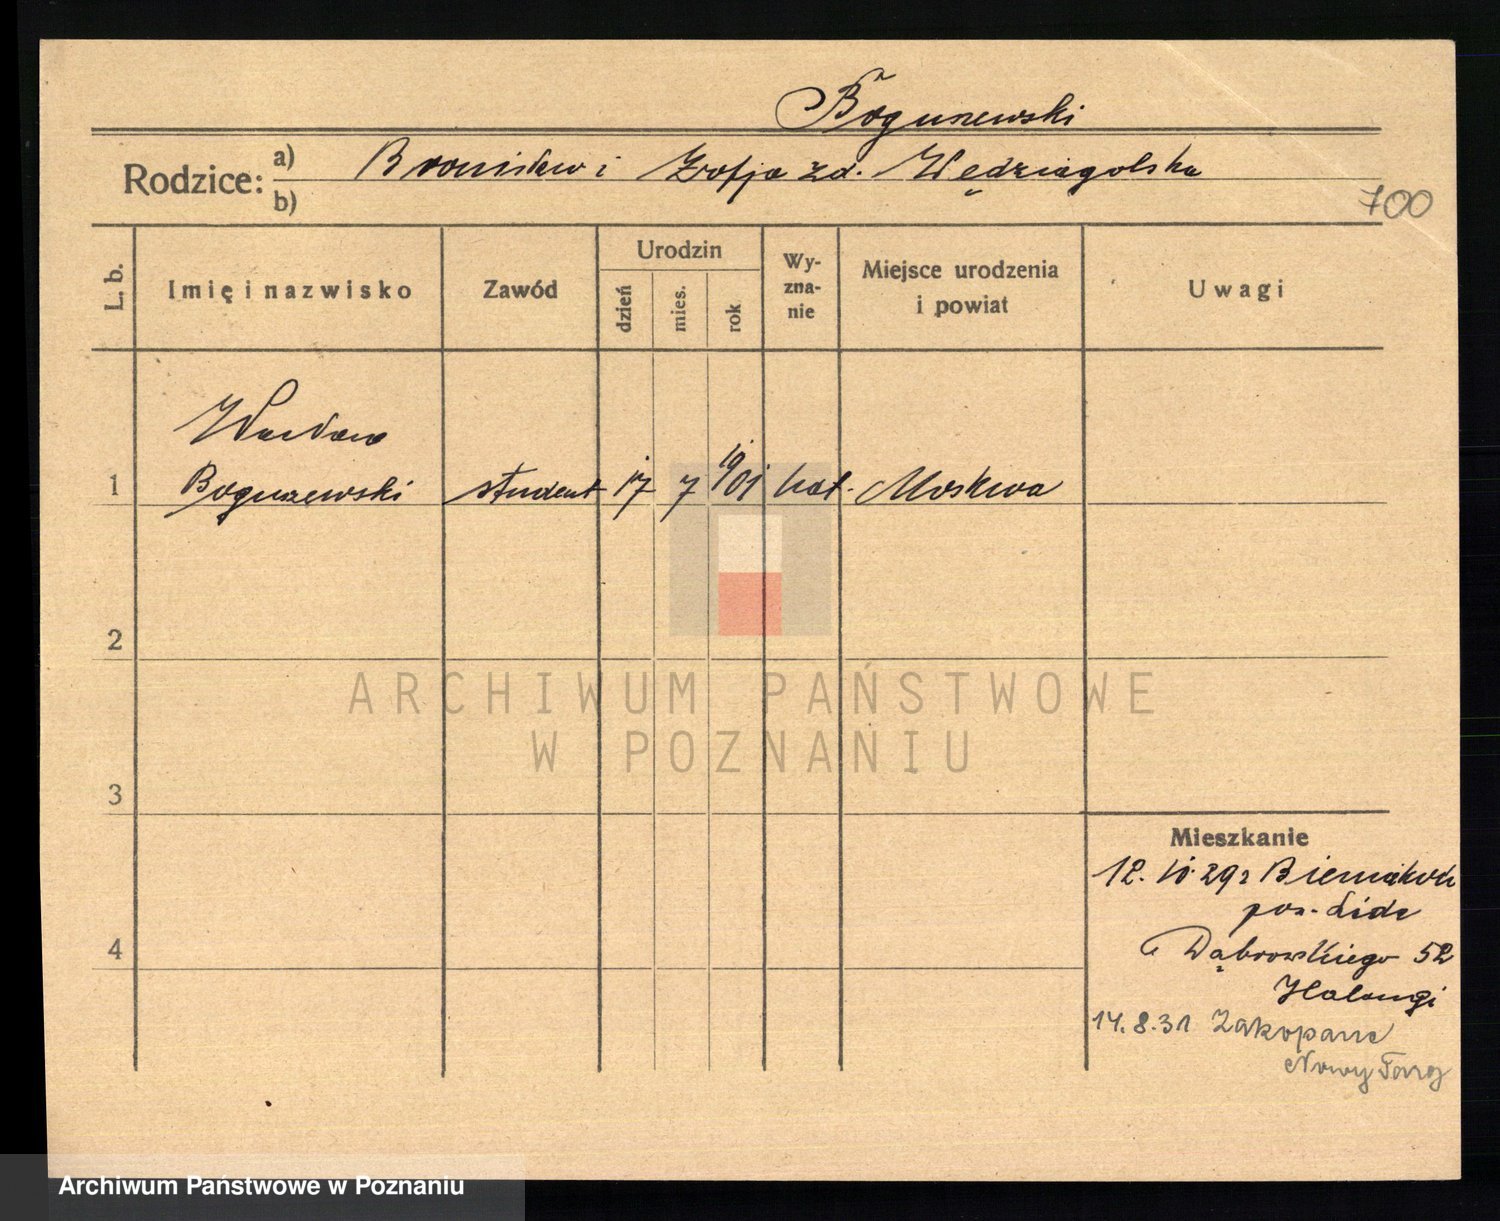 Boguszewski
Rodzice: a) Bronisław i Zofja zd. Wędziagolska
b)
700
L. b.
Imię i nazwisko
Zawód
Urodzin
dzień
mies.
rok
Wy-
zna-
nie
Miejsce urodzenia
i powiat
Uwagi
Wacław
1 Boguszewski student 17 7 1901 kat. Moskwa
2
ARCHIWUM PAŃSTWOWE
W POZNANIU
3
Mieszkanie
12. 10. 29 z
pow. Lida
4
Dąbrowskiego 52
14. 8. 31 Zakopane
Nowy Targ
Archiwum Państwowe w Poznaniu